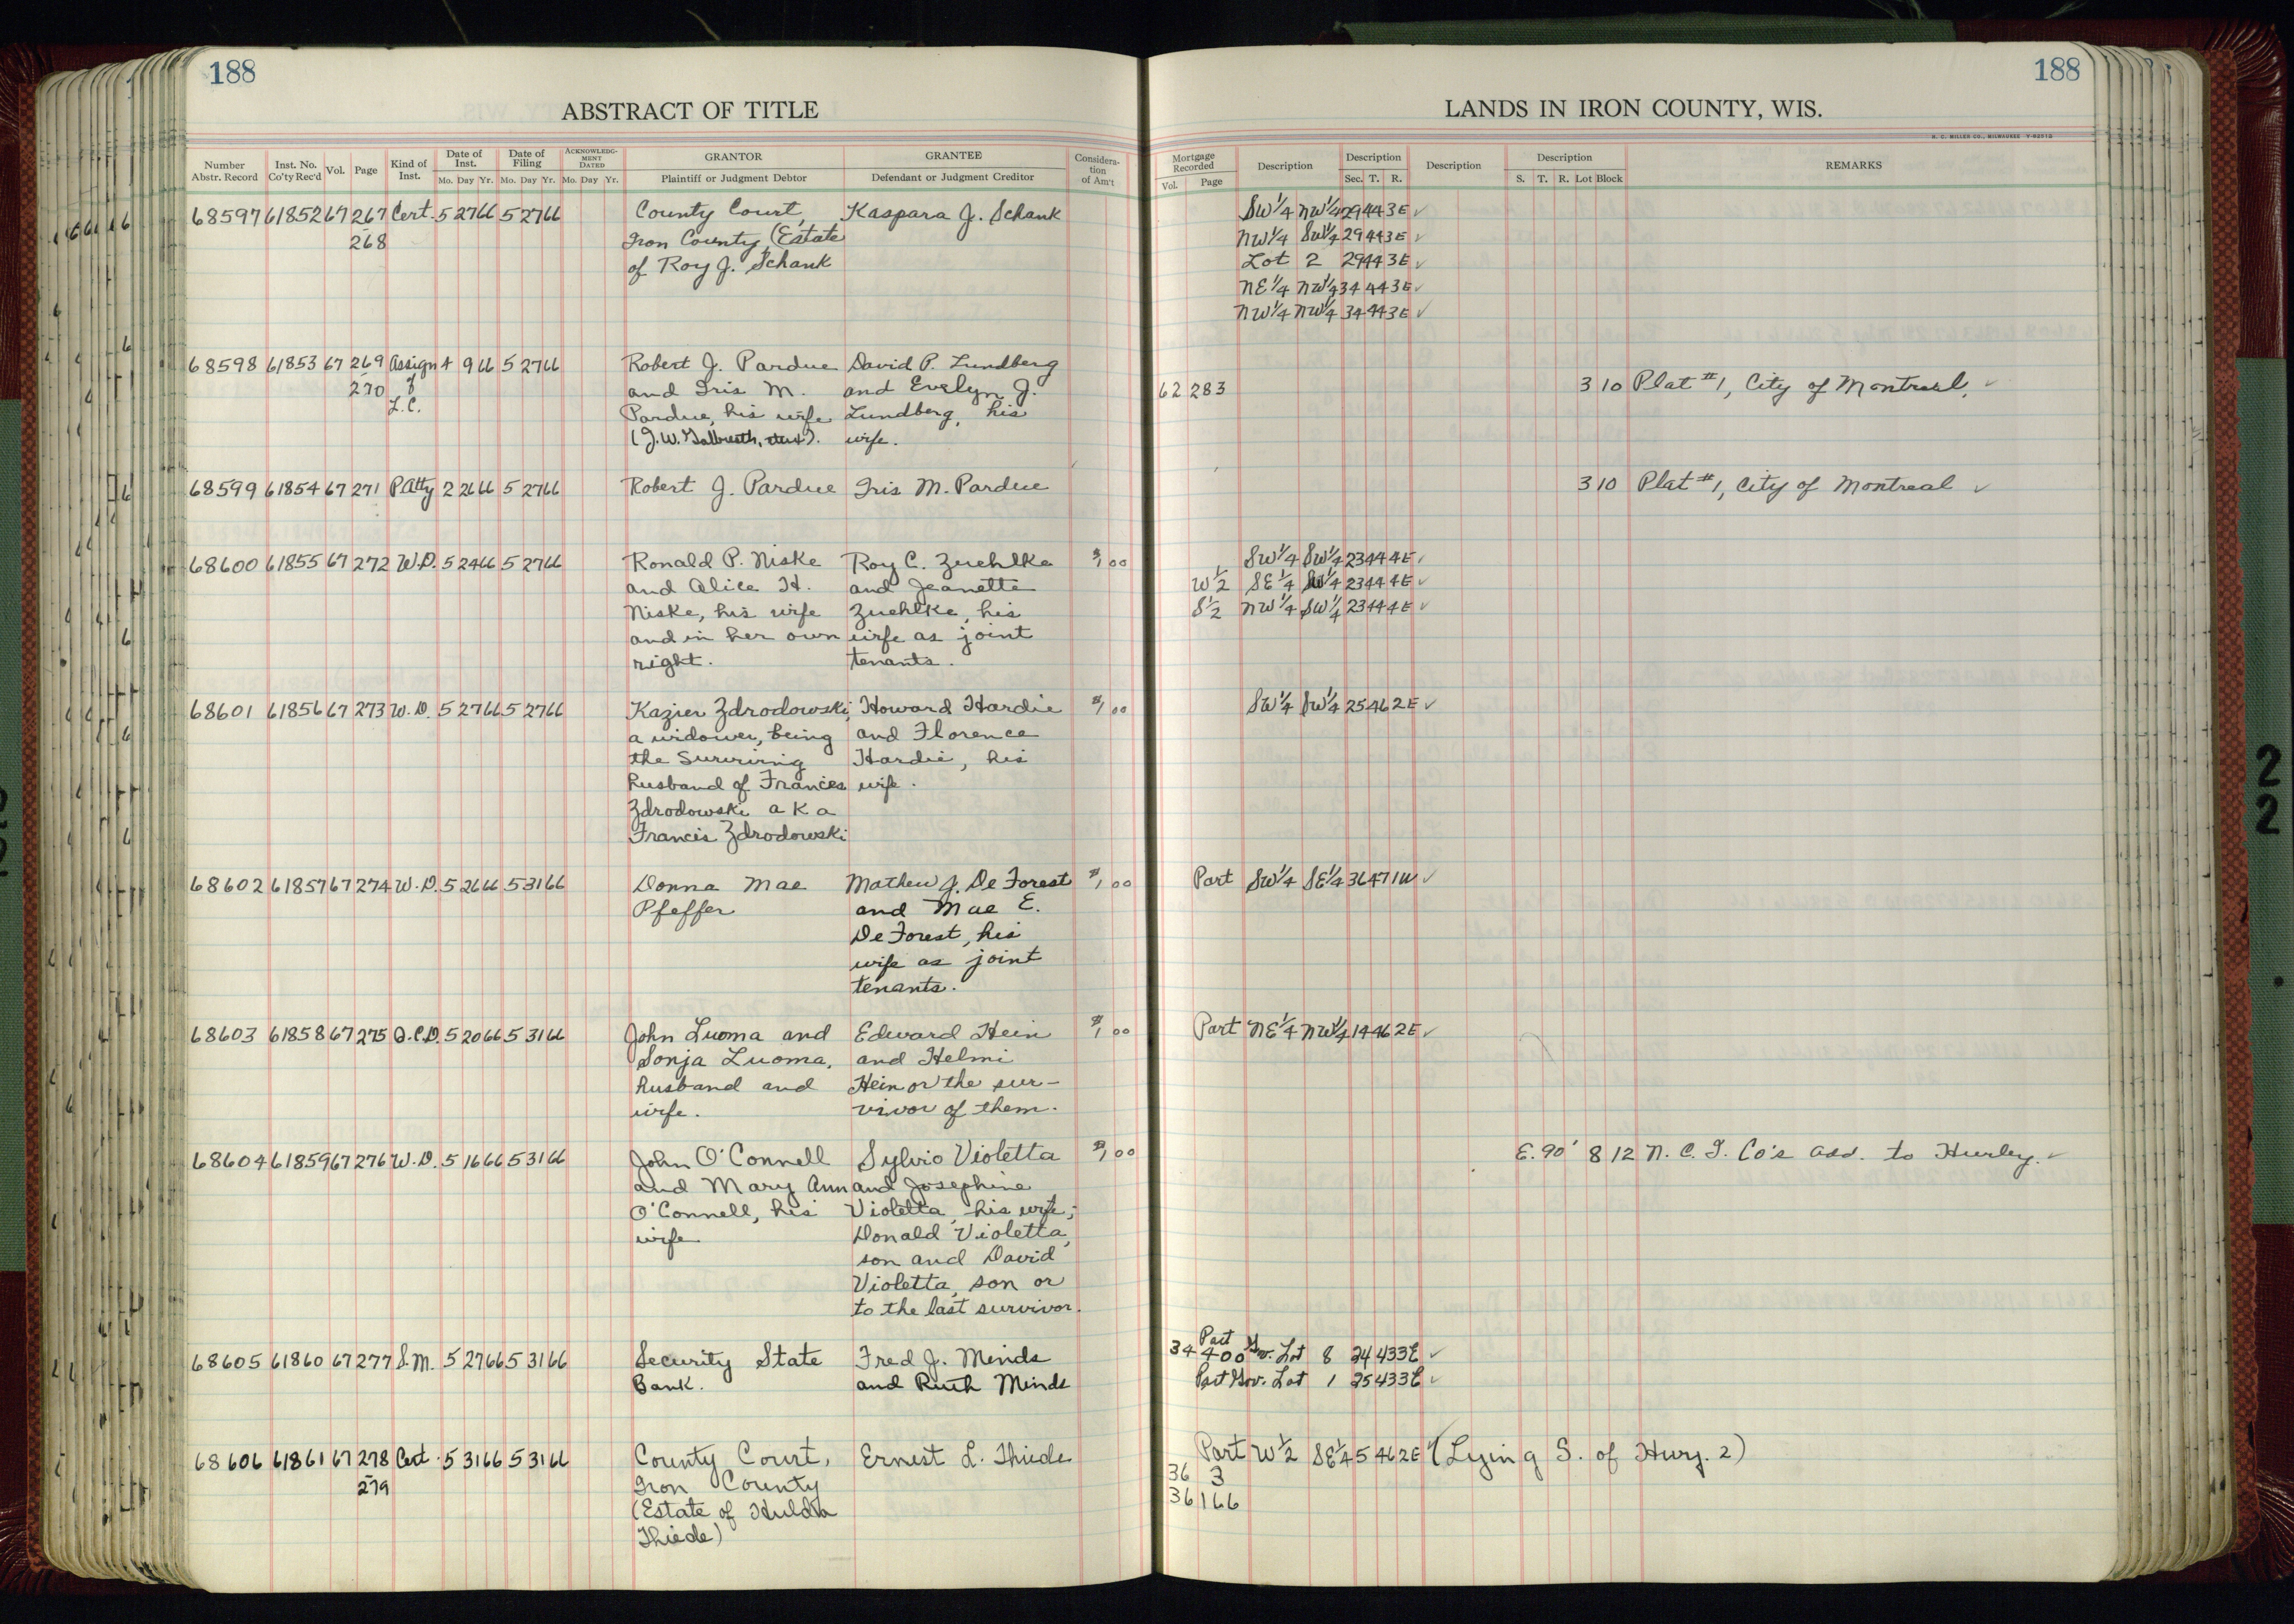 188
188
ABSTRACT OF TITLE
LANDS IN IRON COUNTY, WIS.
H. C. MILLER CO., MILWAUKEE
Number Abstr. Record Inst. No. Co'ty Rec'd Vol. Page Kind of Inst. Date of Inst. Mo. Day Yr. Date of Filing Mo. Day Yr. ACKNOWLEDGMENT DATED Mo. Day Yr. GRANTOR Plaintiff or Judgment Debtor GRANTEE Defendant or Judgment Creditor Consideration of Am't
Mortgage Recorded Vol. Page Description Description Sec. T. R. Description Description S. T. R. Lot Block REMARKS
68597 61852 67 267 Cert. 5 27 66 5 27 66 County Court, Kaspara J. Schank SW 1/4 NW 1/4 29 44 3E ✓
268 Iron County (Estate NW 1/4 SW 1/4 29 44 3E ✓
of Roy J. Schank Lot 2 29 44 3E ✓
NE 1/4 NW 1/4 34 44 3E ✓
NW 1/4 NW 1/4 34 44 3E ✓
68598 61853 67 269 Assign 4 9 66 5 27 66 Robert J. Pardue David P. Lundberg
270 of and Iris M. and Evelyn J. 62 283 3 10 Plat #1, City of Montreal, ✓
L.C. Pardue, his wife Lundberg, his
(J.W. wife.
68599 61854 67 271 P. Atty 2 26 66 5 27 66 Robert J. Pardue Iris M. Pardue 3 10 Plat #1, City of Montreal ✓
68600 61855 67 272 W.D. 5 24 66 5 27 66 Ronald P. Niske Roy C. Zuehlke $1,00 SW 1/4 SW 1/4 23 44 4E ✓
and Alice H. and Jeanette W 1/2 SE 1/4 SW 1/4 23 44 4E ✓
Niske, his wife Zuehlke, his S 1/2 NW 1/4 SW 1/4 23 44 4E ✓
and in her own wife as joint
right. tenants.
68601 61856 67 273 W.D. 5 27 66 5 27 66 Kazier Zdrodowski, Howard Hardie $1,00 SW 1/4 SW 1/4 25 46 2E ✓
a widower, being and Florence
the Surviving Hardie, his
husband of Frances wife.
Zdrodowski a k a
Francis Zdrodowski
68602 61857 67 274 W.D. 5 26 66 5 31 66 Donna Mae Mathew J. De Forest $1,00 Part SW 1/4 SE 1/4 36 47 1W ✓
Pfeffer and Mae E.
De Forest, his
wife as joint
tenants.
68603 61858 67 275 Q.C.D. 5 20 66 5 31 66 John Luoma and Edward Hein $1,00 Part NE 1/4 NW 1/4 14 46 2E ✓
Sonja Luoma, and Helmi
husband and Hein or the sur-
wife. vivor of them.
68604 61859 67 276 W.D. 5 16 66 5 31 66 John O'Connell Sylvio Violetta $1,00 E. 90' 8 12 N. C. I. Co's Add. to Hurley. ✓
and Mary Ann and Josephine
O'Connell, his Violetta, his wife;
wife Donald Violetta,
son and David
Violetta, son or
to the last survivor.
68605 61860 67 277 S.M. 5 27 66 5 31 66 Security State Fred J. Minds 34 400 Part Gov. Lot 8 24 43 3E ✓
Bank. and Ruth Minds Part Gov. Lot 1 25 43 3E ✓
68606 61861 67 278 Cert. 5 31 66 5 31 66 County Court, Ernest L. Thiede Part W 1/2 SE 1/4 5 46 2E ✓ (Lying S. of Hwy. 2)
279 Iron County 36 3
(Estate of Hulda 36 166
Thiede)